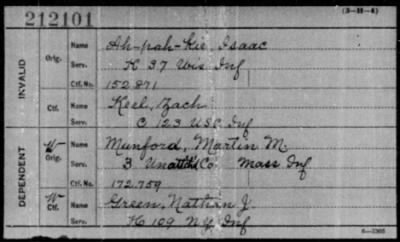 212101 (3-11-4)
INVALID Orig. Name Ah-pah-kee, Isaac
Serv. K 37 Wis Inf
Ctf. No. 152.871
Ctf. Name Keel, Zach
Serv. C 123 USC Inf
DEPENDENT W- Orig. Name Munford, Martin M.
Serv. 3 Unattchd Co Mass Inf
Ctf. No. 172.759
W Ctf. Name Green, Nathan J.
Serv. K 109 N.Y. Inf